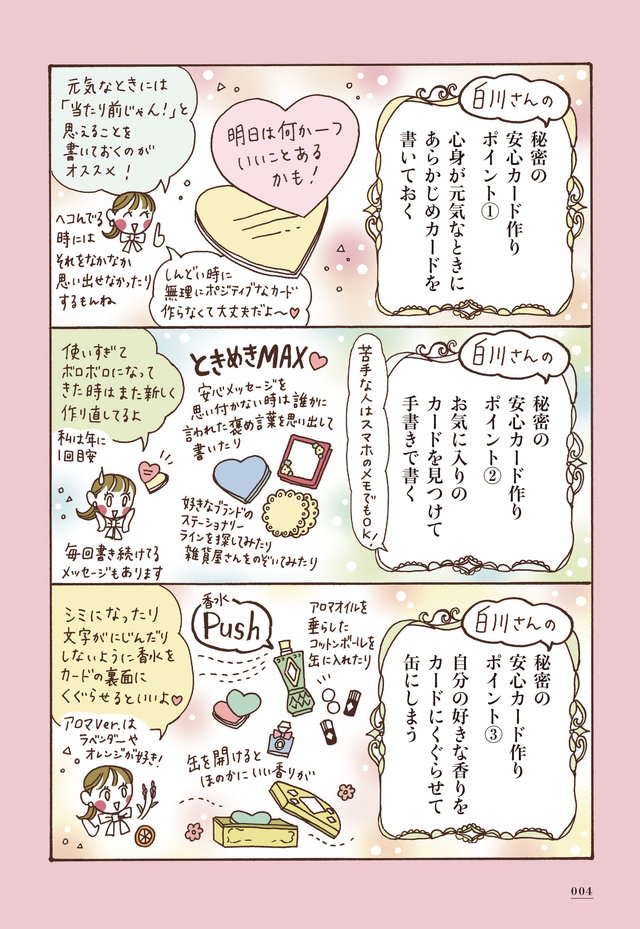 白川さんの
秘密の
安心カード作り
ポイント①
心身が元気なときに
あらかじめカードを
書いておく
明日は何か一つ
いいことある
かも!
元気なときには
「当たり前じゃん!」と
思えることを
書いておくのが
オススメ!
しんどい時に
無理にポジティブなカード
作らなくて大丈夫だよ〜♥
ヘコんでる
時には
それをなかなか
思い出せなかったり
するもんね
白川さんの
秘密の
安心カード作り
ポイント②
お気に入りの
カードを見つけて
手書きで書く
苦手な人はスマホのメモでもOK!
ときめきMAX♥
安心メッセージを
思い付かない時は誰かに
言われた褒め言葉を思い出して
書いたり
好きなブランドの
ステーショナリー
ラインを探してみたり
雑貨屋さんをのぞいてみたり
使いすぎて
ボロボロになって
きた時はまた新しく
作り直してるよ
私は年に
1回目安
毎回書き続けてる
メッセージもあります
白川さんの
秘密の
安心カード作り
ポイント③
自分の好きな香りを
カードにくぐらせて
缶にしまう
アロマオイルを
垂らした
コットンボールを
缶に入れたり
香水
Push
缶を開けると
ほのかにいい香りが
シミになったり
文字がにじんだり
しないように香水を
カードの裏面に
くぐらせるといいよ♥
アロマver.は
ラベンダーや
オレンジが好き!
004